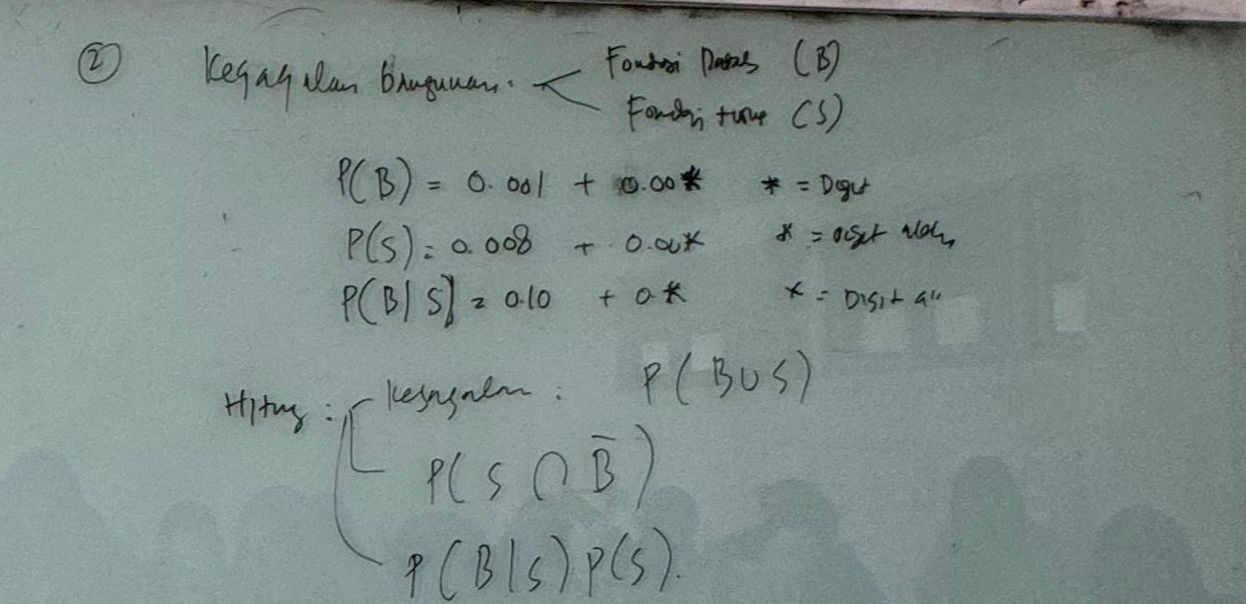 ② Kegagalan bangunan. Fondasi (B)
Fondasi turun (S)
P(B) = 0.001 + 0.00* * = Digit
P(S) = 0.008 + 0.00* * = Digit
P(B|S) = 0.10 + 0.* * = Digit
Hitung : Kegagalan : P(B∪S)
P(S ∩ B̄)
P(B|S) P(S).